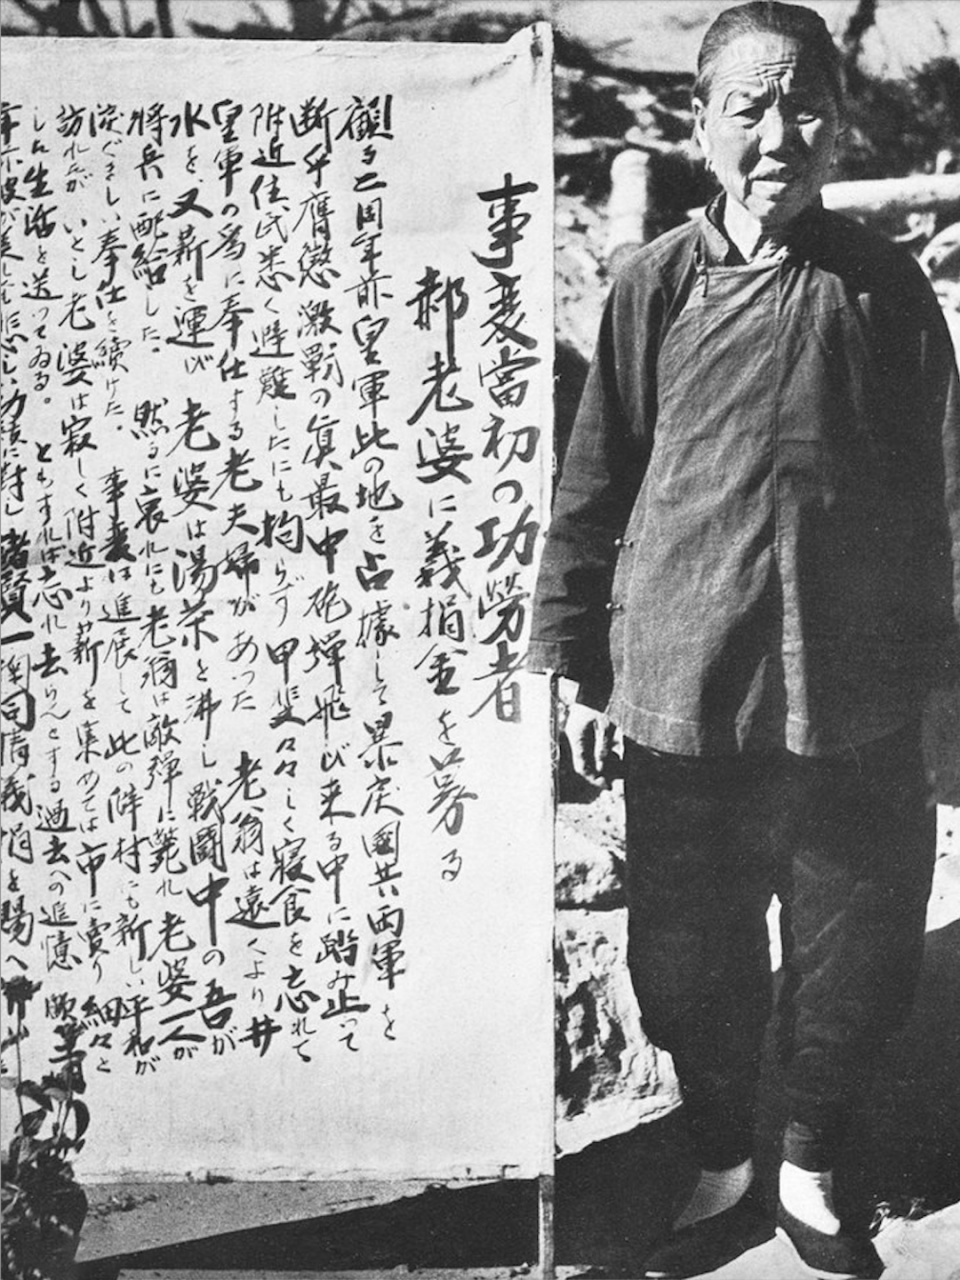 事変當初の功労者
郝老婆に義捐金を募る
顧る二周年前皇軍此の地を占據して暴戻國共両軍を
断乎膺懲激戰の真最中砲弾飛び来る中に踏み止って
附近住民悉く避難したにも拘らず甲斐々々しく寝食を忘れて
皇軍の為に奉仕する老夫婦があった 老翁は遠くより井
水を、又薪を運び 老婆は湯茶を沸し戰闘中の吾が
將兵に配給した。 然るに哀れにも老翁は敵弾に斃れ老婆一人が
涙ぐましい奉仕を續けた。 事変は進展して此の僻村にも新しい平和が
訪れたが いとし老婆は寂しく附近より薪を集めては市に賣り細々と
した生活を送ってゐる。 ともすれば忘れ去らんとする過去への追憶
諸賢一同